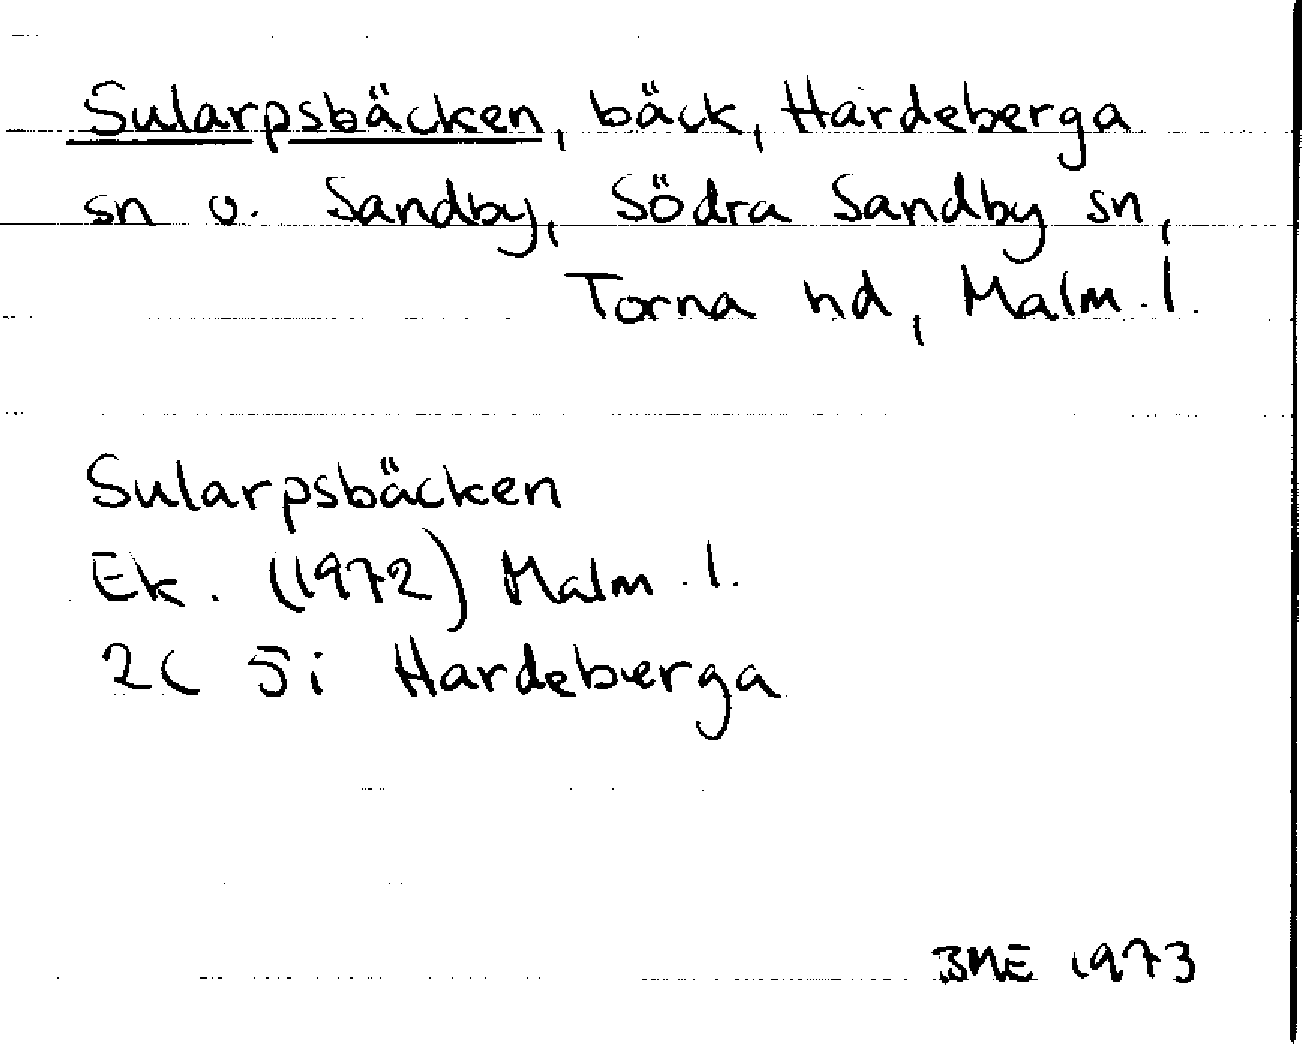 Sularpsbäcken, bäck, Hardeberga
sn o. Sandby, Södra Sandby sn,
Torna hd, Malm. l.
Sularpsbäcken
Ek. (1972) Malm. l.
2C 5i Hardeberga
BME 1973